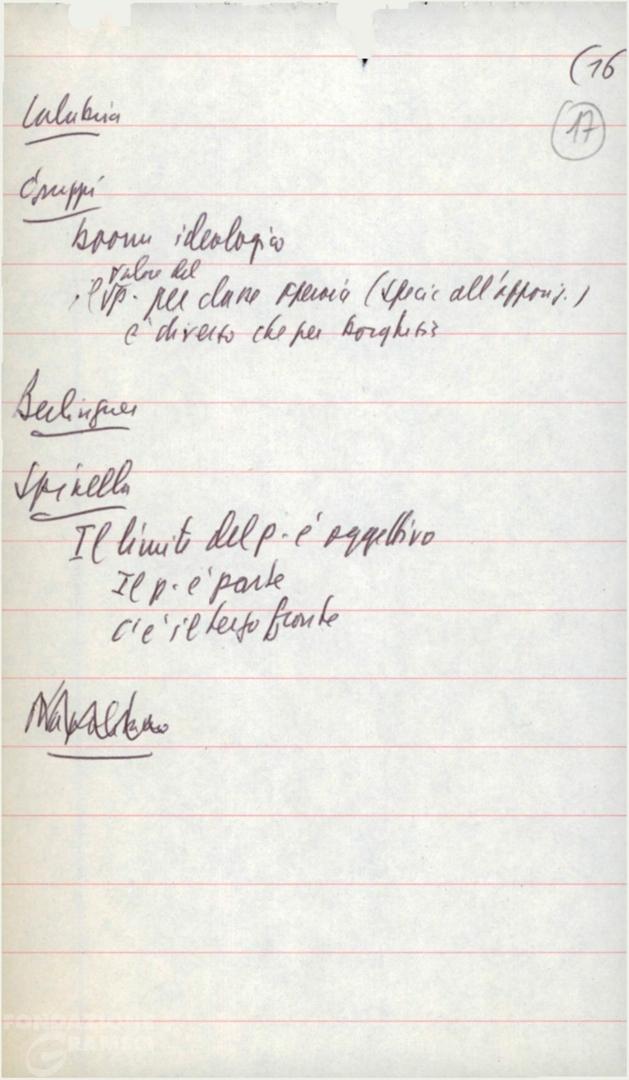 (16
17
Calabria
Gruppi
boom ideologico
valore del
il p. per classe operaia (specie all'oppos.)
è diverso che per borghesia
Berlinguer
Spinella
Il limite del p. è oggettivo
Il p. è parte
c'è il terzo fronte
Napolitano
FONDAZIONE
GRAMSCI